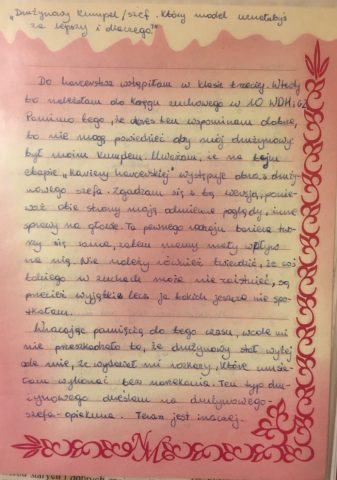 "Drużynowy kumpel/szef. Który model uznałabyś
za lepszy i dlaczego?"
Do harcerstwa wstąpiłam w klasie trzeciej. Wtedy
to należałam do kręgu zuchowego w 10 WDH i GZ
Pomimo tego, że okres ten wspominam dobrze,
to nie mogę powiedzieć aby mój drużynowy
był moim kumplem. Uważam, że na tym
etapie „kariery harcerskiej" występuje obraz druży-
nowego szefa. Zgadzam się z tą wersją, ponie-
waż obie strony mają odmienne poglądy, inne
sprawy na głowie. Ta pewnego rodzaju bariera two-
rzy się sama, zatem mamy mały wpływ
na nią. Nie należy również twierdzić, że coś
takiego w zuchach może nie zaistnieć, są
przecież wyjątki lecz ja takich jeszcze nie spo-
tkałam.
Wracając pamięcią do tego czasu, wcale mi
nie przeszkadzało to, że drużynowy stał wyżej
ode mnie, że wydawał mi rozkazy, które umia-
łam wykonać bez narzekania. Ten typ dru-
żynowego określam na drużynowego-
szefa-opiekuna. Teraz jest inaczej.
NM